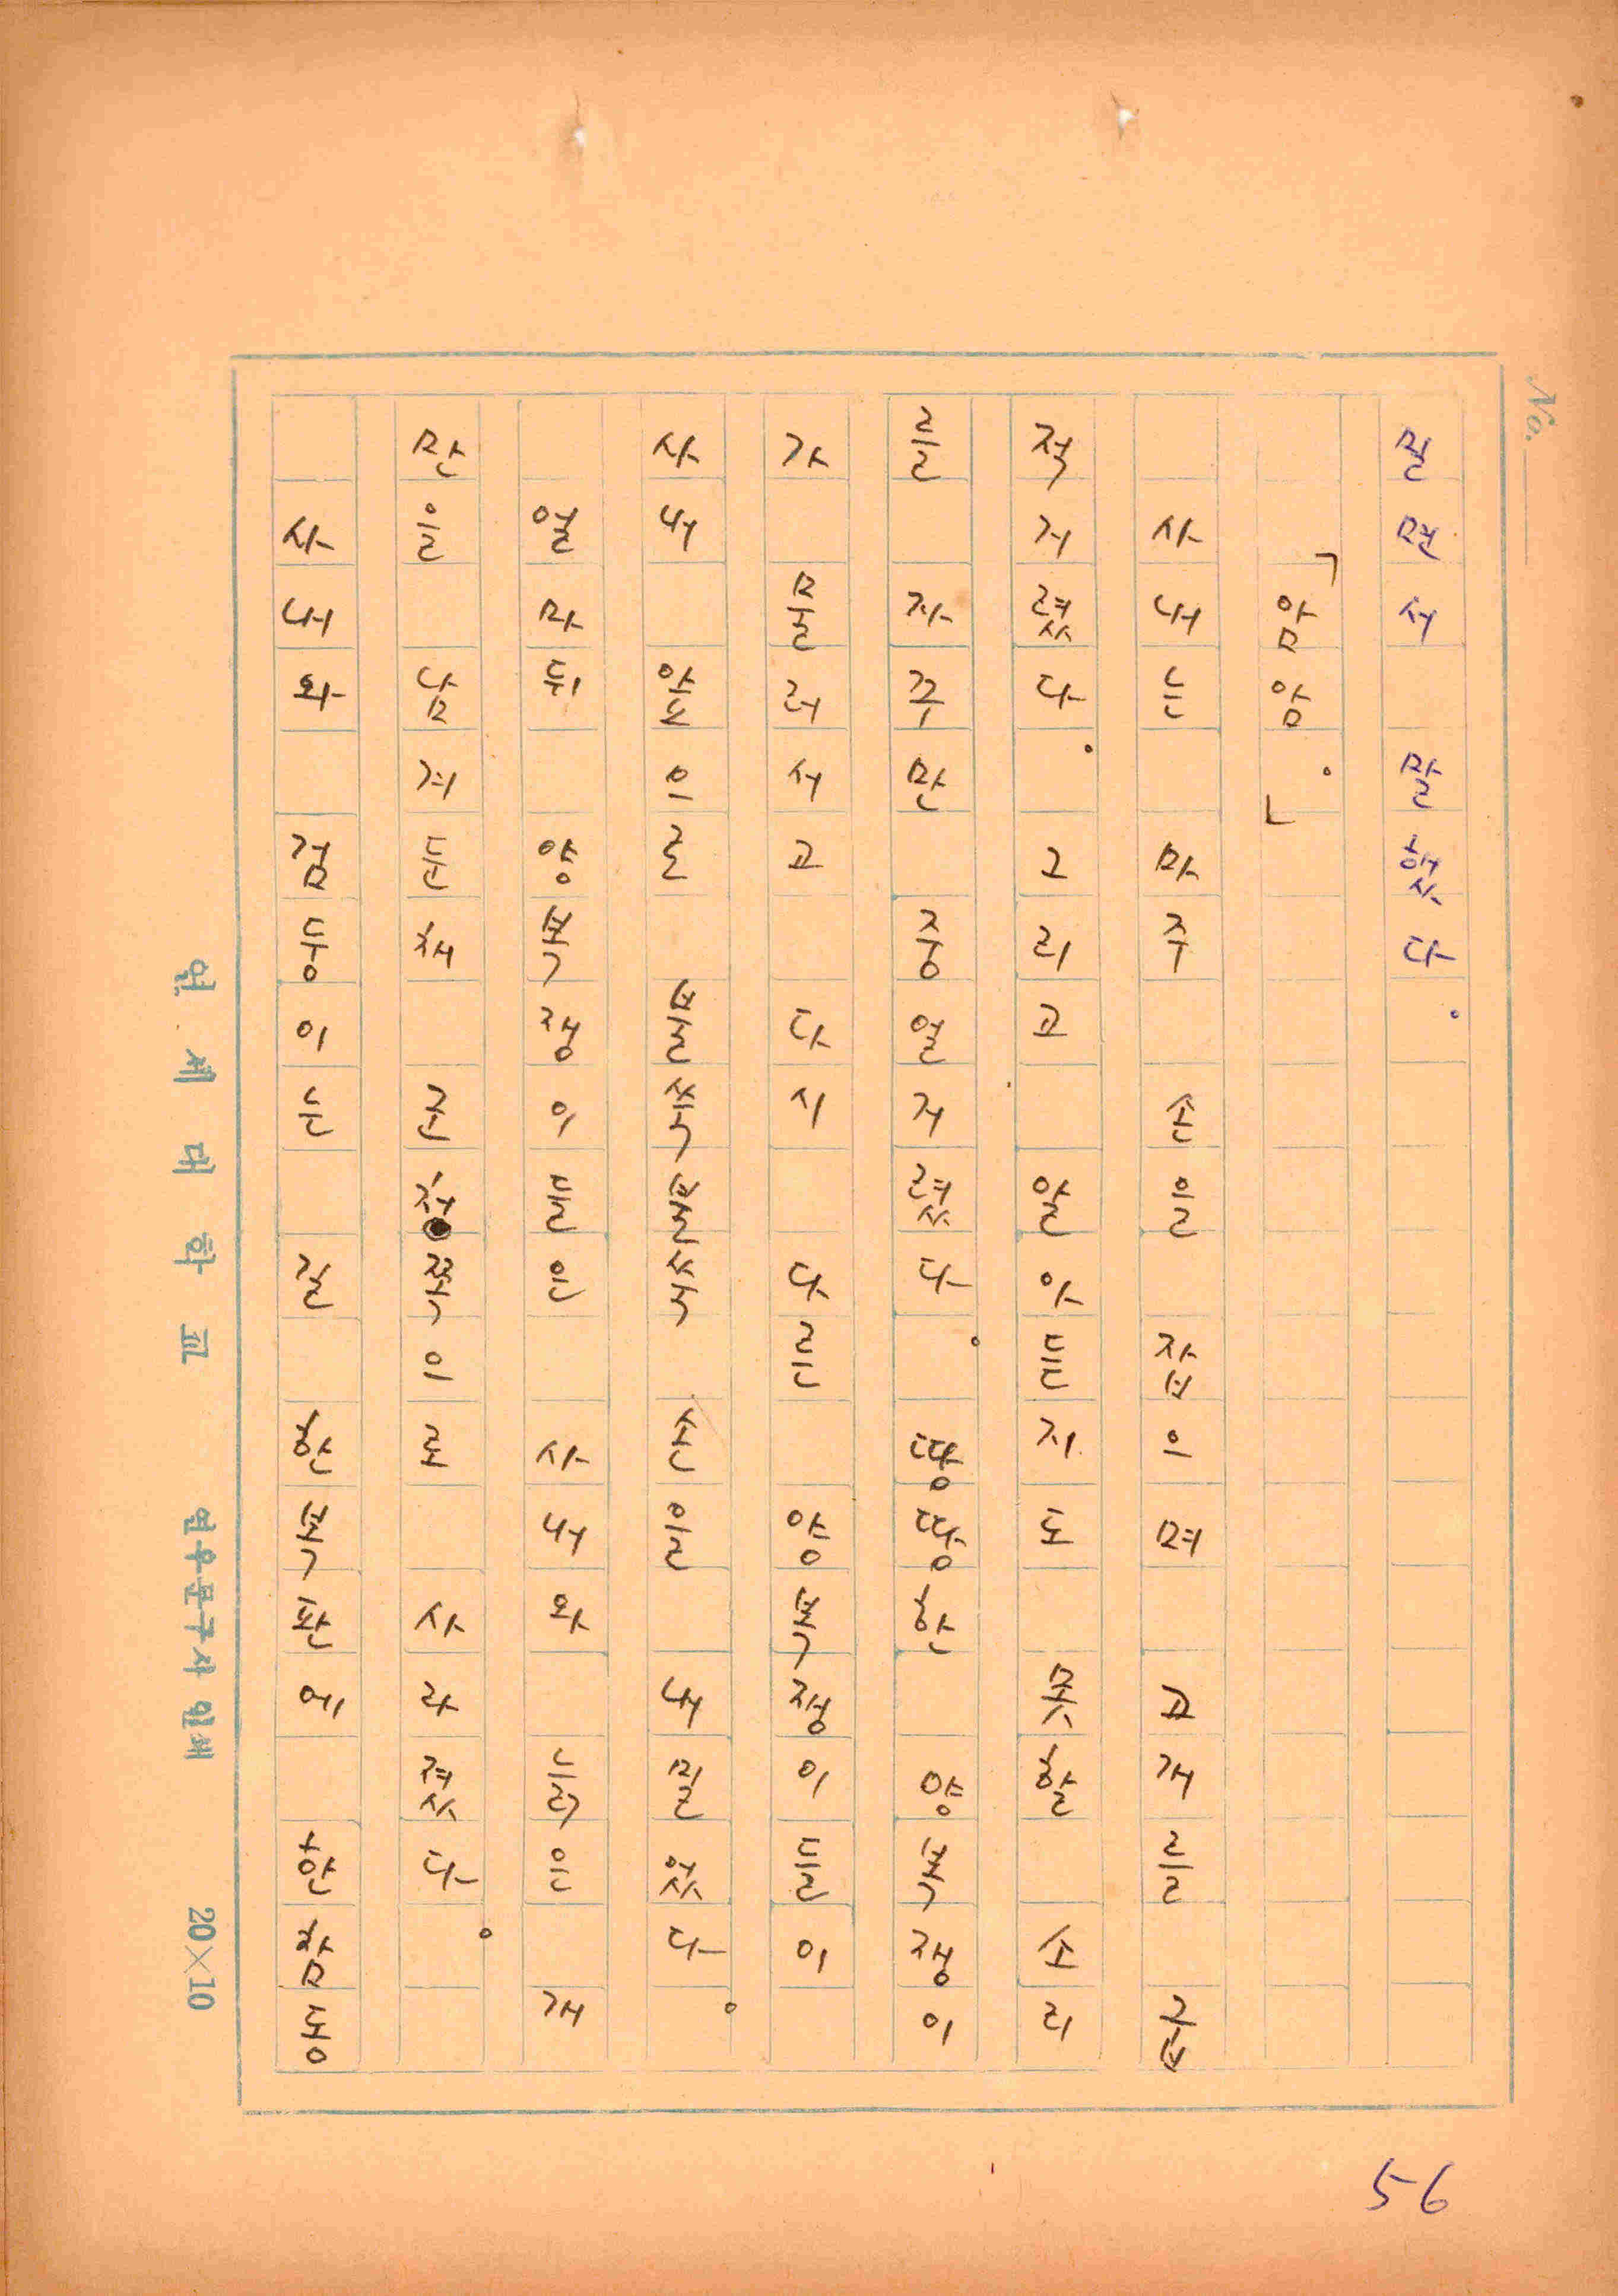 No.
밀면서 말했다.
「암암.」
사내는 마주 손을 잡으며 고개를 굽
적거렸다. 그리고 알아듣지도 못할 소리
를 자꾸만 중얼거렸다. 땅땅한 양복쟁이
가 물러서고 다시 다른 양복쟁이들이
사내 앞으로 불쑥불쑥 손을 내밀었다.
얼마 뒤 양복쟁이들은 사내와 늙은 개
만을 남겨둔채 군청쪽으로 사라졌다.
사내와 검둥이는 길 한복판에 한참동
연세대학교 연우문구사 인쇄 20×10
56